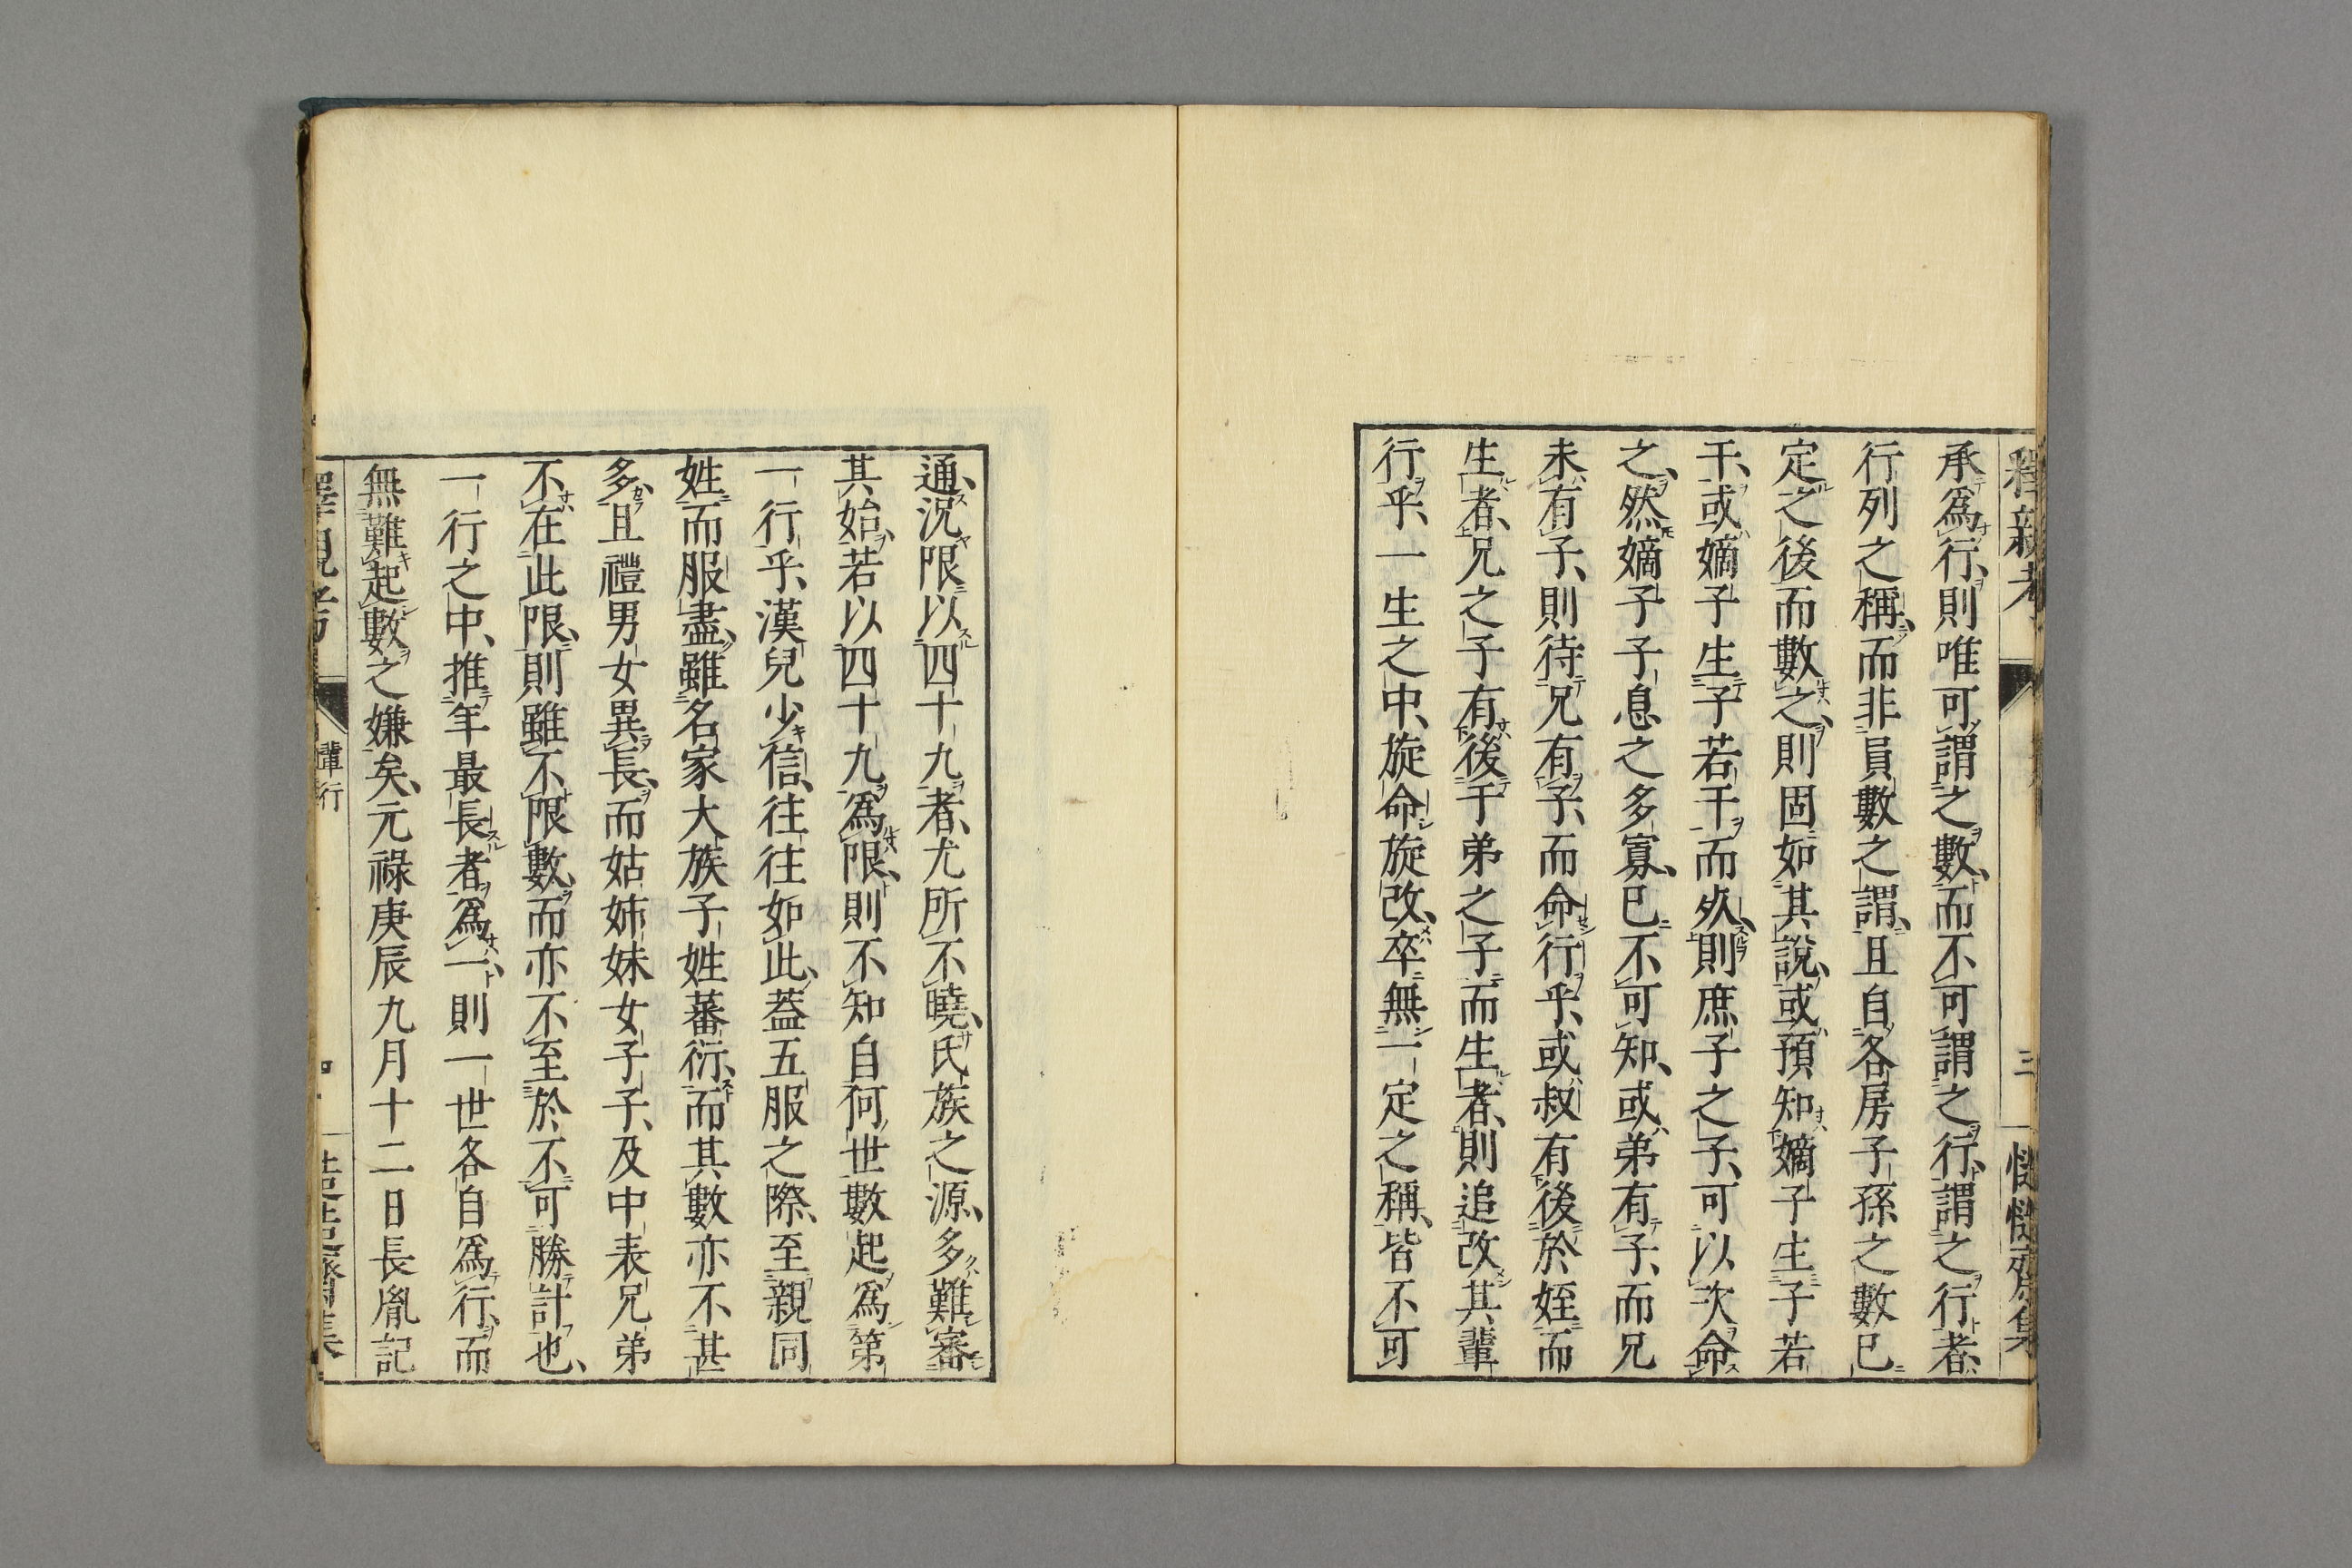 釋親考
三
慥慥齋集
承爲行、則唯可謂之數、而不可謂之行、謂之行者、
行列之稱、而非員數之謂、且自各房子孫之數已
定之後而數之、則固如其說、或預知嫡子生子若
干、或嫡子生子若干而歿、則庶子之子、可以次命
之、然嫡子子息之多寡、已不可知、或弟有子、而兄
未有子、則待兄有子、而命行乎、或叔有後於姪而
生者、兄之子有後于弟之子而生者、則追改其輩
行乎、一生之中、旋命旋改、卒無一定之稱、皆不可
通、況限以四十九者、尤所不曉、氏族之源、多難審
其始、若以四十九爲限、則不知自何世數起爲第
一行乎、漢兒少信、往往如此、蓋五服之際、至親同
姓而服盡、雖名家大族子姓蕃衍、而其數亦不甚
多、且禮男女異長、而姑姊妹女子子、及中表兄弟
不在此限、則雖不限數、而亦不至於不可勝計也、
一行之中、推年最長者爲一、則一世各自爲行、而
無難起數之嫌矣、元祿庚辰九月十二日長胤記
釋親考
輩行